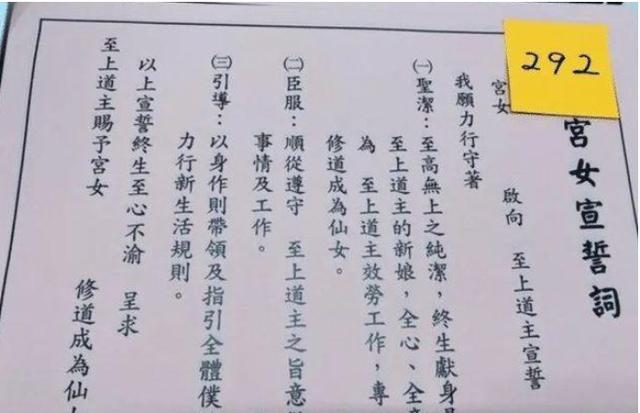 292
宮女宣誓詞
宮女　　啟向　至上道主宣誓
我願力行守著
㈠聖潔：至高無上之純潔，終生獻身
至上道主的新娘，全心、全
為　至上道主效勞工作，專
修道成為仙女。
㈡臣服：順從遵守　至上道主之旨意
事情及工作。
㈢引導：以身作則帶領及指引全體僕
力行新生活規則。
以上宣誓終生至心不渝　呈求
至上道主賜予宮女
修道成為仙